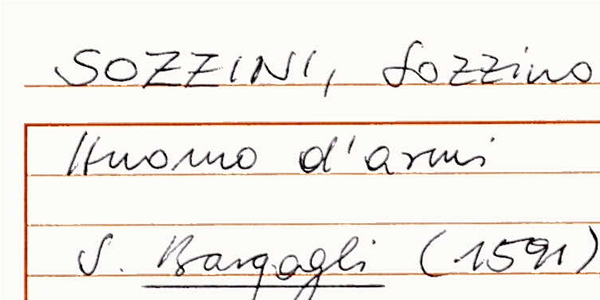 SOZZINI, Sozzino
Huomo d'armi
S. Bargagli (1591)